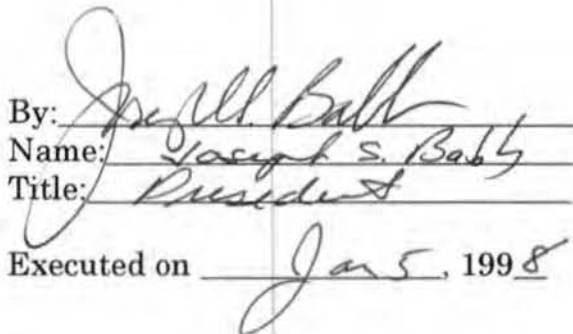 By: Joseph S. Babb
Name: Joseph S. Babb
Title: President
Executed on Jan 5, 1998